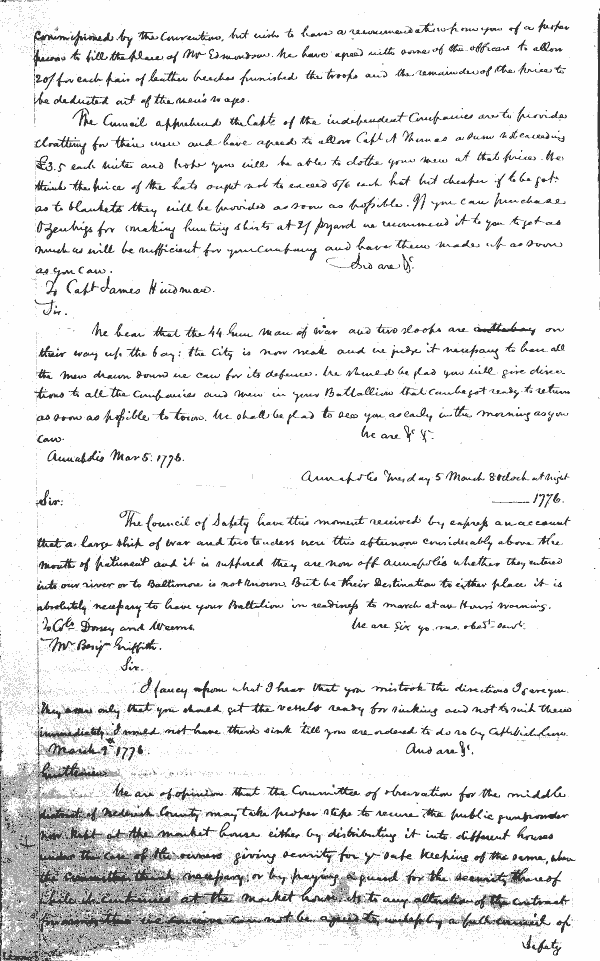 commissioned by the Convention, but wish to have a recommendation from you of a proper
person to fill the place of Mr Edmondson. We have agreed with some of the officers to allow
20/ for each pair of leather breeches furnished the troops and the remainder of the price to
be deducted out of the men's wages.
The Council apprehend the Capts of the independent Companies are to provide
cloathing for their men and have agreed to allow Capt J Thomas a sum not exceeding
£3.5 each suite and hope you will be able to clothe your men at that price. We
think the price of the hats ought not to exceed 5/6 each hat but cheaper if to be got.
as to blankets they will be provided as soon as possible. If you can purchase
Oznabrigs for making hunting shirts at 2/ pr yard we recommend it to you to get as
much as will be sufficient for your Company and have them made up as soon
as you can.
We are &c.
To Capt James Hindman.
Sir.
We hear that the 44 Gun man of war and two sloops are on
their way up the bay: the City is now weak and we judge it necessary to have all
the men drawn down we can for its defence. We should be glad you will give direc-
tions to all the Companies and men in your Battallion that can be got ready to return
as soon as possible to town. We shall be glad to see you as early in the morning as you
can.
We are &c &c.
Annapolis Mar 5. 1776.
Annapolis Tuesday 5 March 8 oClock at night
1776.
Sir:
The Council of Safety have this moment received by express an account
that a large ship of war and two tenders were this afternoon considerably above the
mouth of patuxent and it is supposed they are now off Annapolis whether they entered
into our river or to Baltimore is not known. But be their Destination to either place it is
absolutely necessary to have your Battalion in readiness to march at an Hours warning.
To Cols Dorsey and Weems.
We are Sir yr. mo. obedt. servt.
Mr Benjn Griffith.
Sir.
I fancy upon what I hear that you mistook the directions I gave you.
They were only that you should get the vessels ready for sinking and not to sink them
immediately. I would not have them sink 'till you are ordered to do so by Capt
March 9th 1776.
And are &c.
Gentlemen
We are of opinion that the Committee of observation for the middle
district of Frederick County may take proper steps to secure the public gunpowder
now kept at the market house either by distributing it into different houses
under the care of the owners giving security for ye safe keeping of the same, when
the Committee think necessary; or by paying a guard for the security thereof
while it continues at the market house. As to any alteration of the contract
for we conceive can not be agreed to, unless by a full council of
Safety